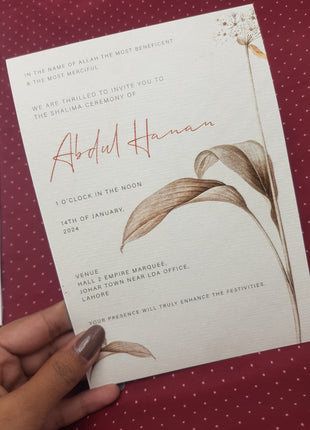 IN THE NAME OF ALLAH THE MOST BENEFICENT
& THE MOST MERCIFUL
WE ARE THRILLED TO INVITE YOU TO
THE SHALIMA CEREMONY OF
Abdul Hanan
1 O'CLOCK IN THE NOON
14TH OF JANUARY,
2024
VENUE
HALL 2 EMPIRE MARQUEE,
JOHAR TOWN NEAR LDA OFFICE,
LAHORE
YOUR PRESENCE WILL TRULY ENHANCE THE FESTIVITIES.